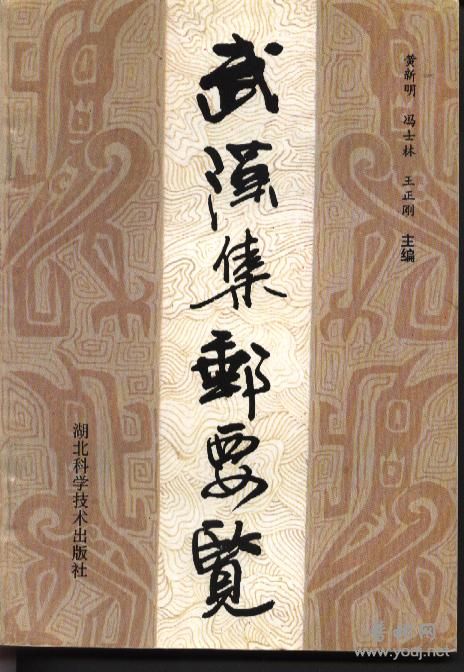 武漢集郵要覽
黄新明 冯士林 王正刚 主编
湖北科学技术出版社
www.youj.net